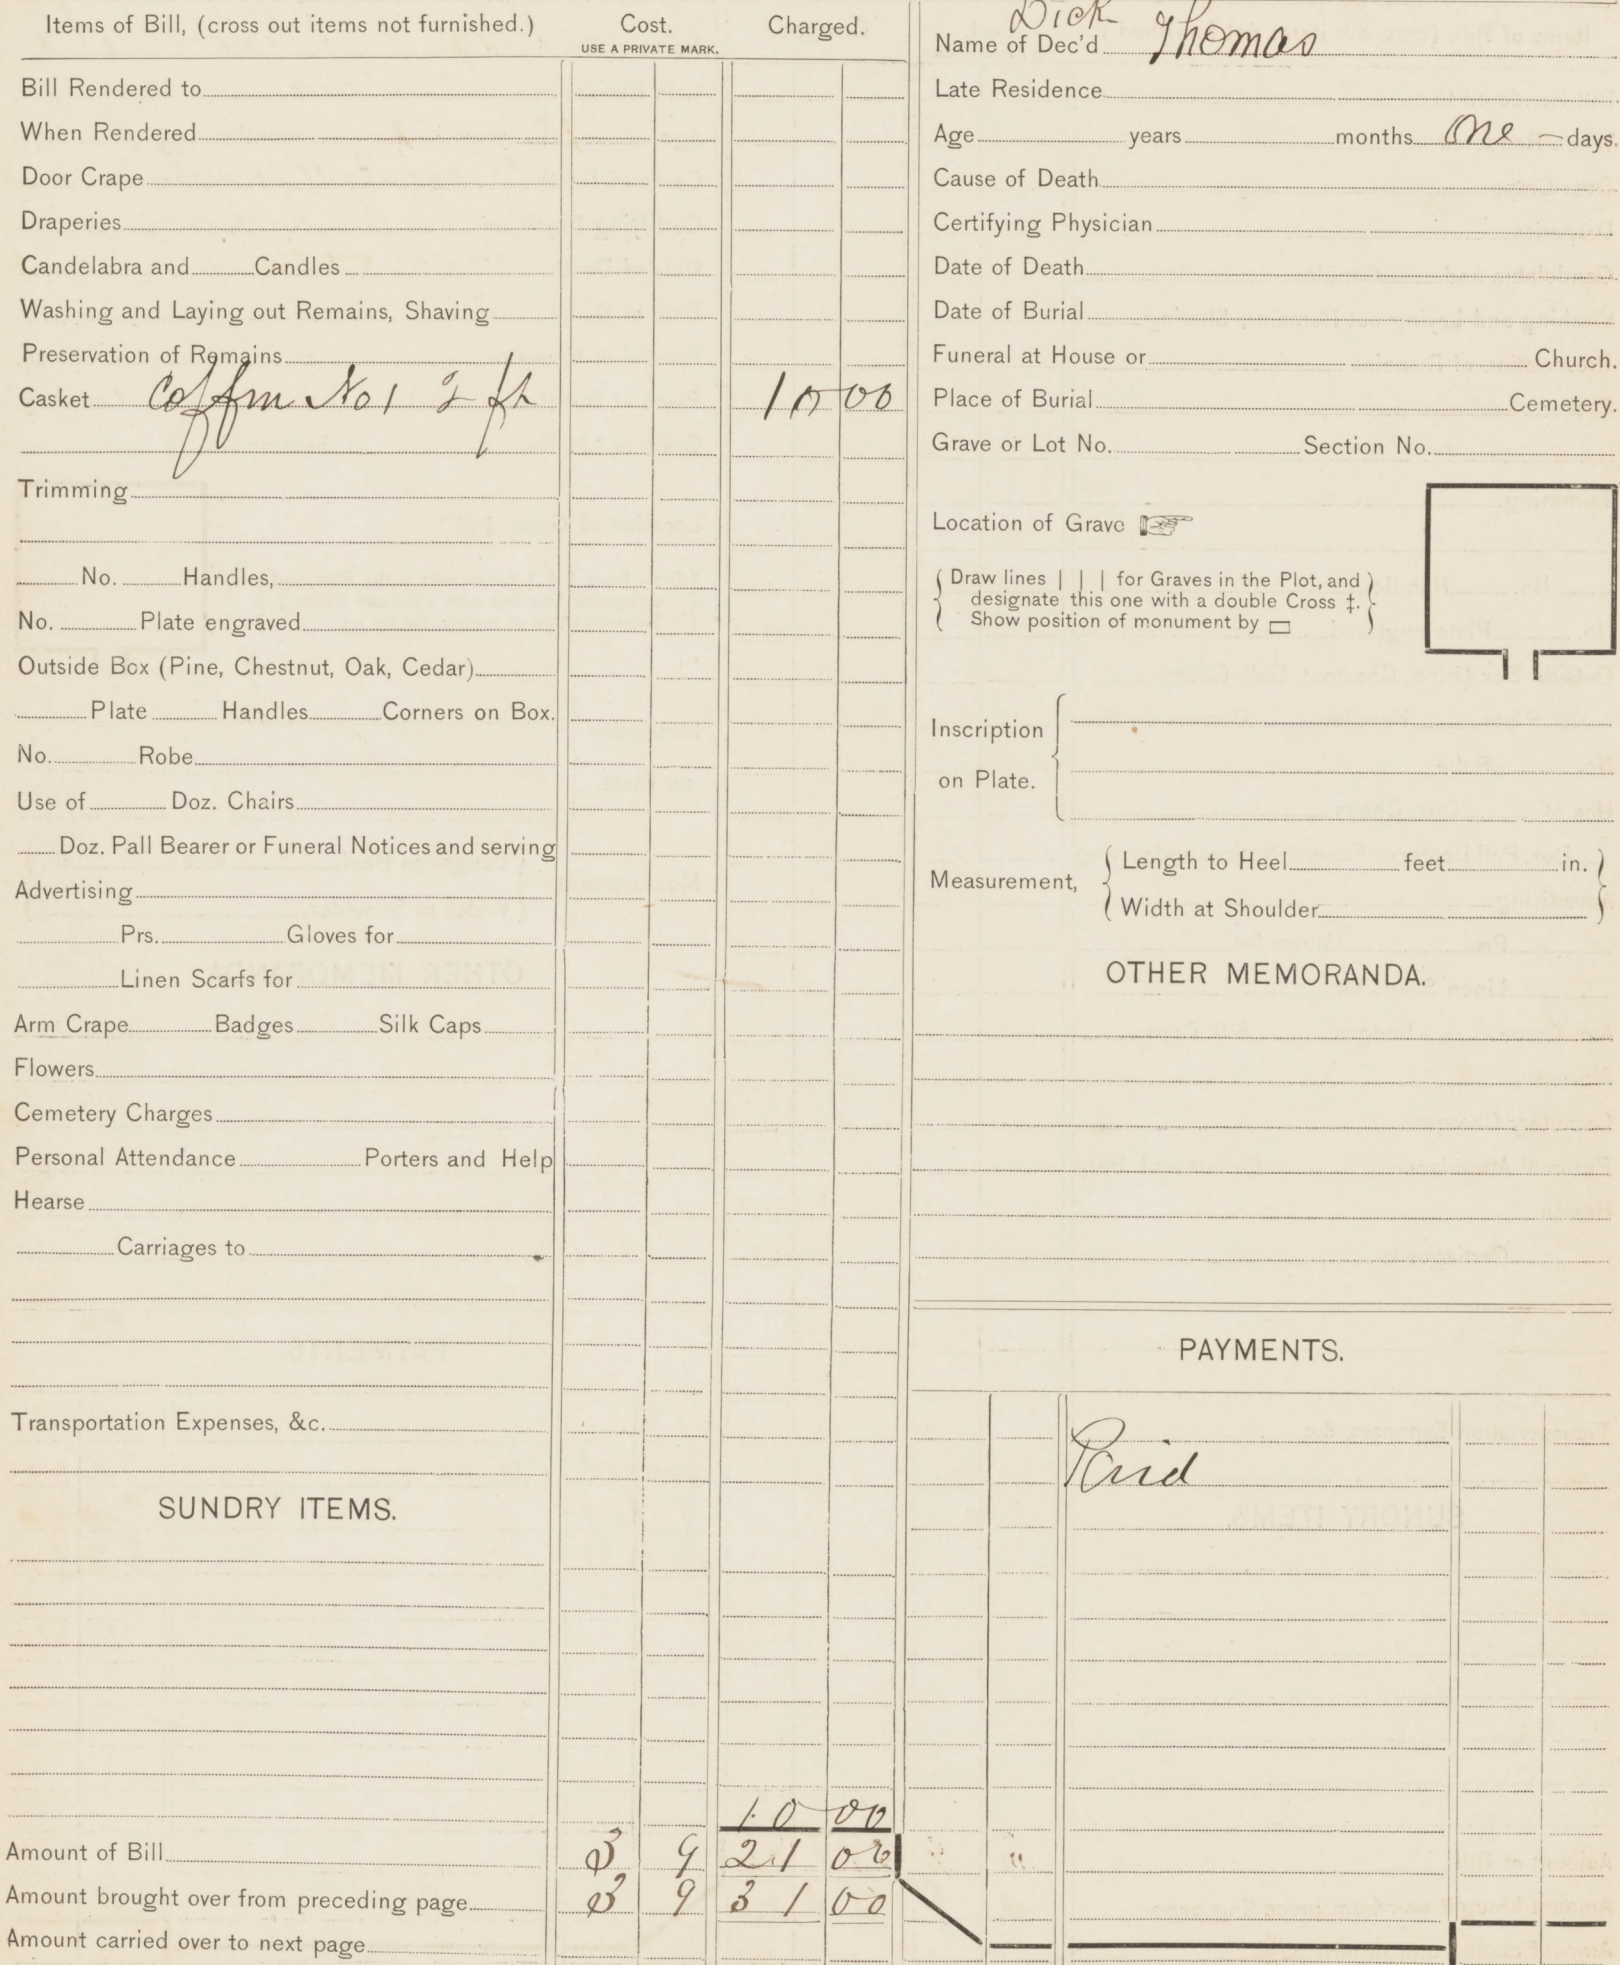 Items of Bill, (cross out items not furnished.) Cost. Charged.
USE A PRIVATE MARK.
Bill Rendered to
When Rendered
Door Crape
Draperies
Candelabra and Candles
Washing and Laying out Remains, Shaving
Preservation of Remains
Casket Coffin No 1 2 ft 10 00
Trimming
No. Handles,
No. Plate engraved
Outside Box (Pine, Chestnut, Oak, Cedar)
Plate Handles Corners on Box.
No. Robe
Use of Doz. Chairs
Doz. Pall Bearer or Funeral Notices and serving
Advertising
Prs. Gloves for
Linen Scarfs for
Arm Crape Badges Silk Caps
Flowers
Cemetery Charges
Personal Attendance Porters and Help
Hearse
Carriages to
Transportation Expenses, &c.
SUNDRY ITEMS.
10 00
Amount of Bill 3 9 21 00
Amount brought over from preceding page 3 9 31 00
Amount carried over to next page
Dick
Name of Dec'd Thomas
Late Residence
Age years months One — days.
Cause of Death
Certifying Physician
Date of Death
Date of Burial
Funeral at House or Church.
Place of Burial Cemetery.
Grave or Lot No. Section No.
Location of Grave ☞
Draw lines | | | for Graves in the Plot, and
designate this one with a double Cross ‡.
Show position of monument by ▭
Inscription
on Plate.
Measurement,
Length to Heel feet in.
Width at Shoulder
OTHER MEMORANDA.
PAYMENTS.
Paid